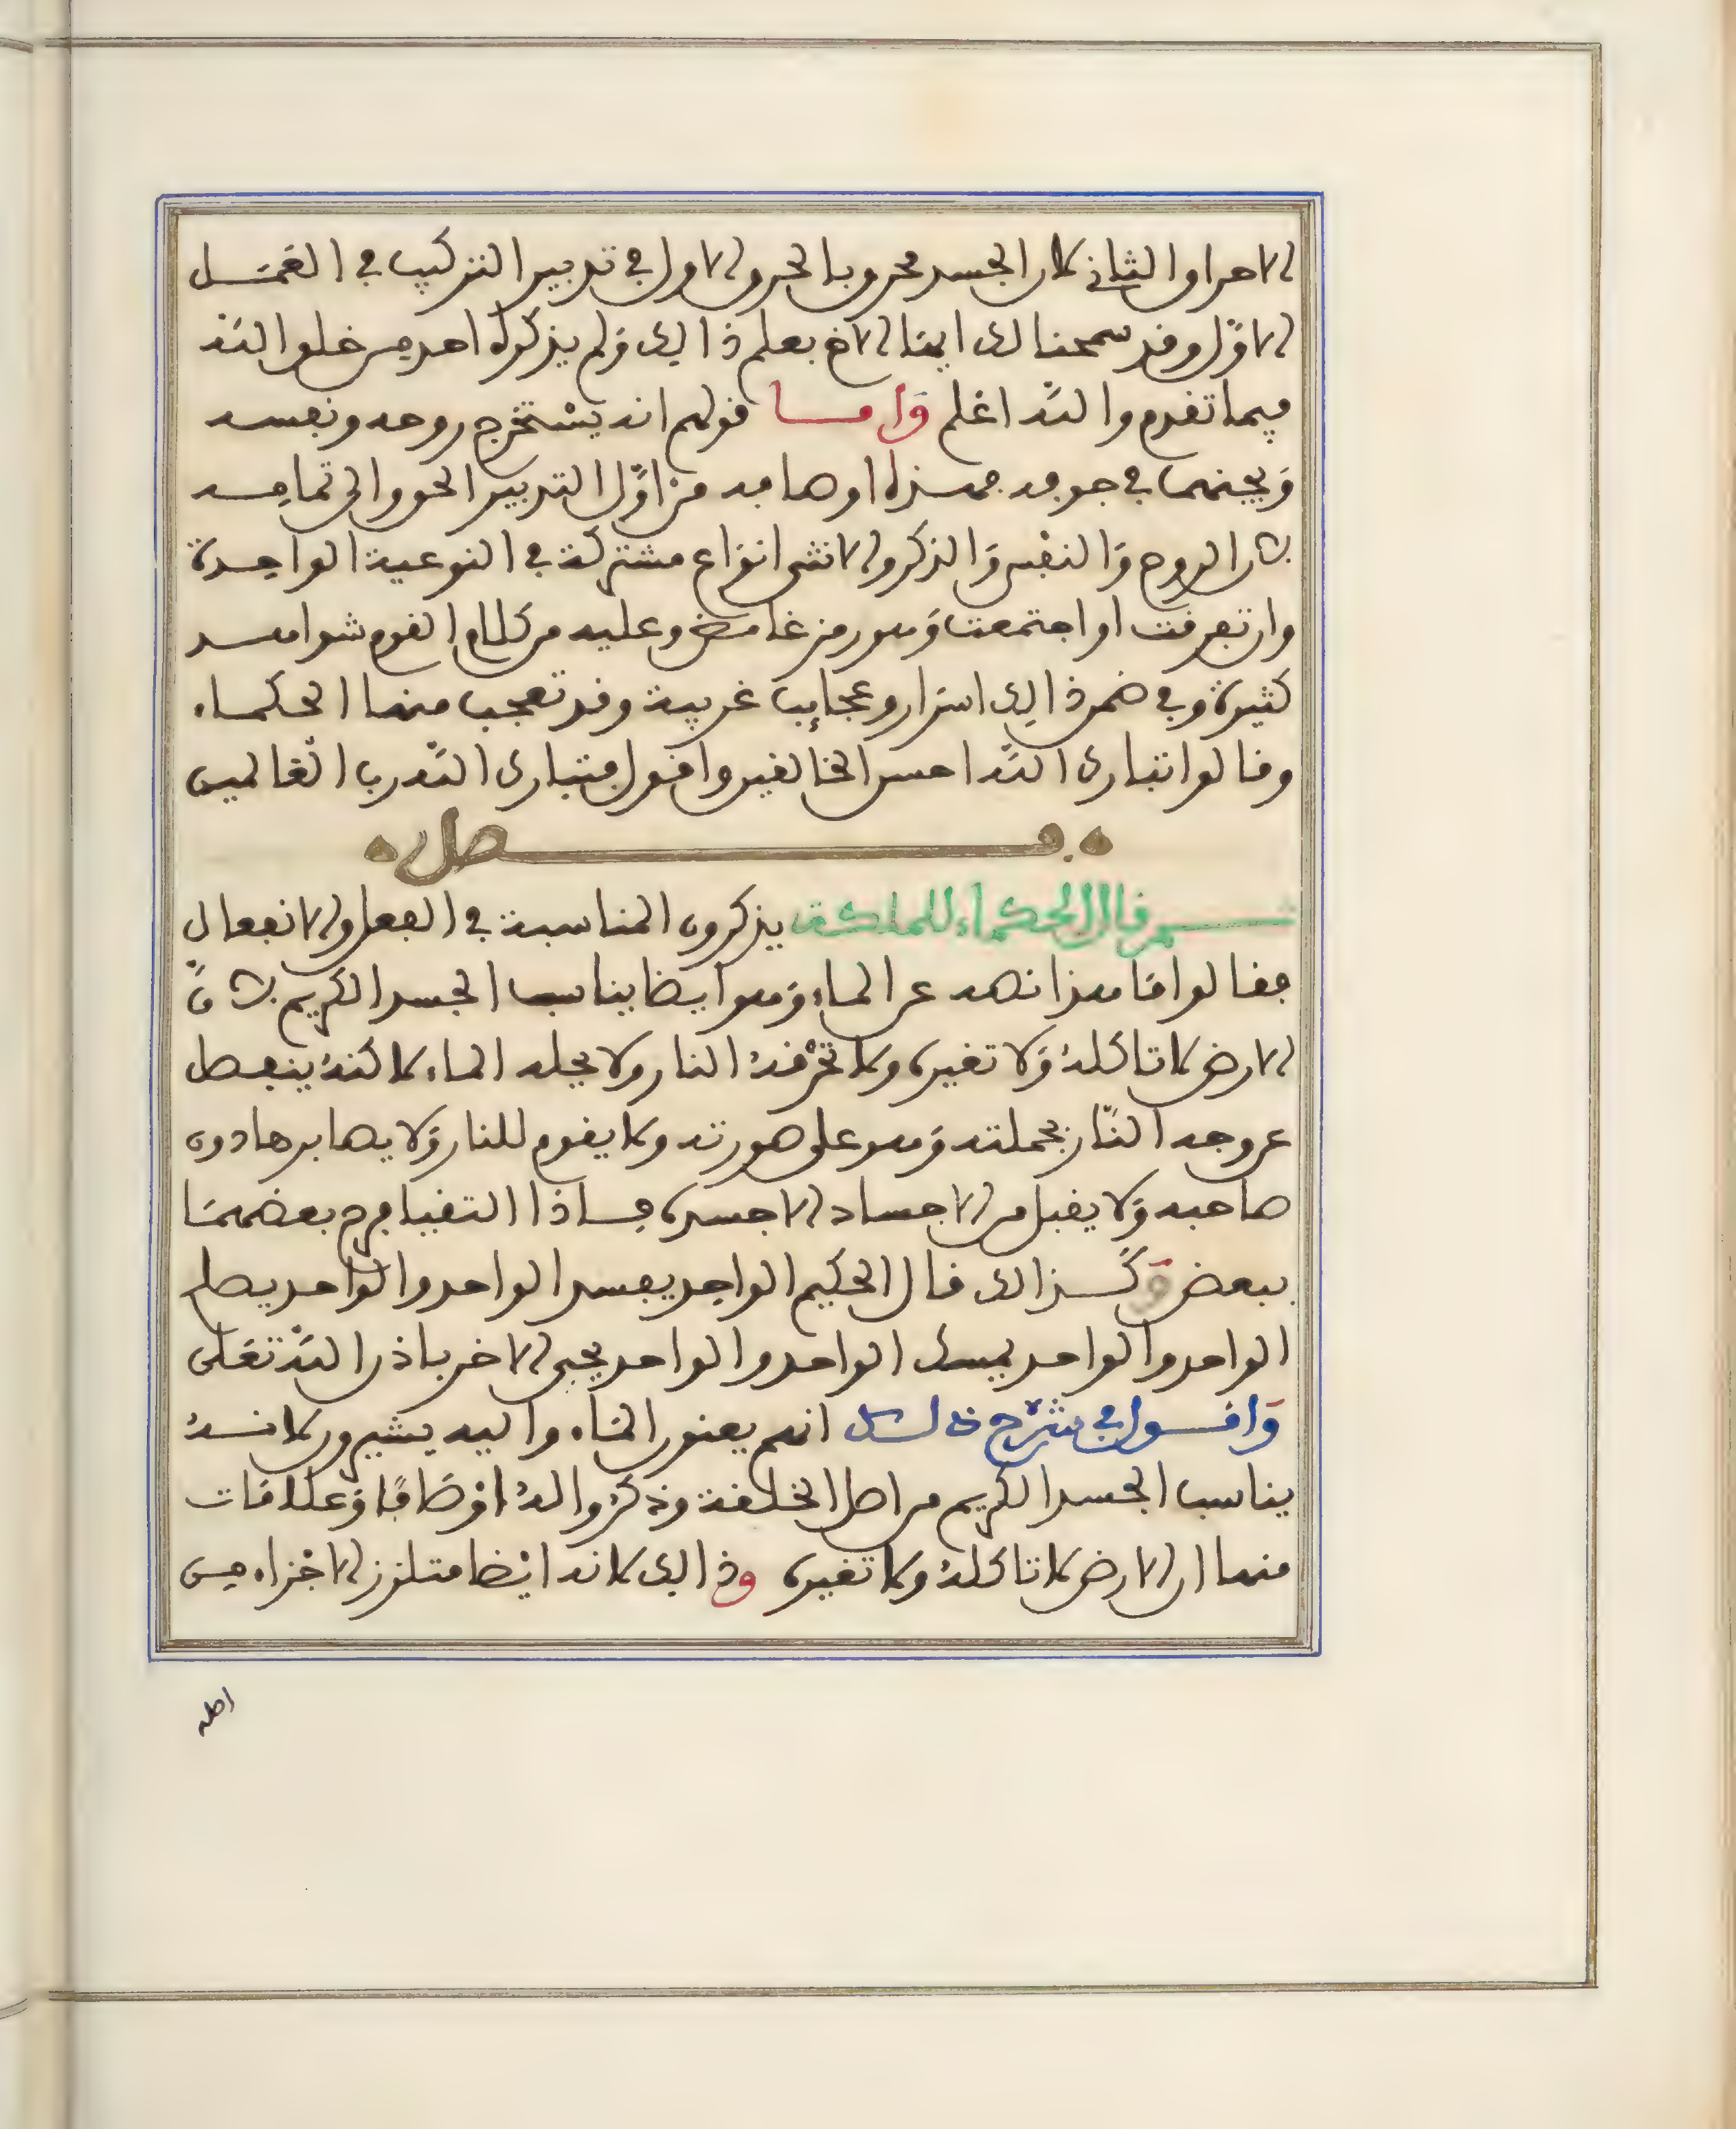 الاحراو الثاني لان الجسد محروق بالحرق الاول في تدبير التركيب في العمل
الاول وقد سمحنا لك ايها الاخ بعلم ذالك ولم يذكره احد من خلق الله
فيما تقدم والله اعلم واما قولهم انه يستخرج روحه ونفسه
ويجنهما في جوفه فهذه اوصافه من اول التدبير الحق والى تمامه
لان الروح والنفس والذكر والانثى انواع مشتركة في النوعية الواحدة
وان تفرقت او اجتمعت وهو رمز غامض وعليه من كلام القوم شواهد
كثيرة وفي ضمن ذالك اسرار وعجايب غريبة وقد تعجب منها الحكماء
وقالوا تبارك الله احسن الخالقين واقول فتبارك الله رب العالمين
فصل
ثم قال الحكماء للملكة يذكرون المناسبة في الفعل والانفعال
فقالوا اما هذا نصه عن الماء وهو ايضا يناسب الجسد الكريم لان
الارض لا تاكله ولا تغيره ولا تحرقه النار ولا يحله الماء لاكنه ينفصل
عن وجه النار بجملته وهو على صورته ولا يقوم للنار ولا يصابرها دون
صاحبه ولا يقبل من الاجساد الا جسده فاذا التقيا فرح بعضهما
ببعض وكذالك قال الحكيم الواحد يفسد الواحد والواحد يصلح
الواحد والواحد يمسك الواحد والواحد يحيي الاخر باذن الله تعلى
واقول في شرح ذلك انهم يعنون الماء واليه يشيرون لانه
يناسب الجسد الكريم من اصل الخلقة وذكروا له اوصافا وعلامات
منها ان الارض لا تاكله ولا تغيره وذالك لانه ايضا متلزز الاجزاء من
اصله